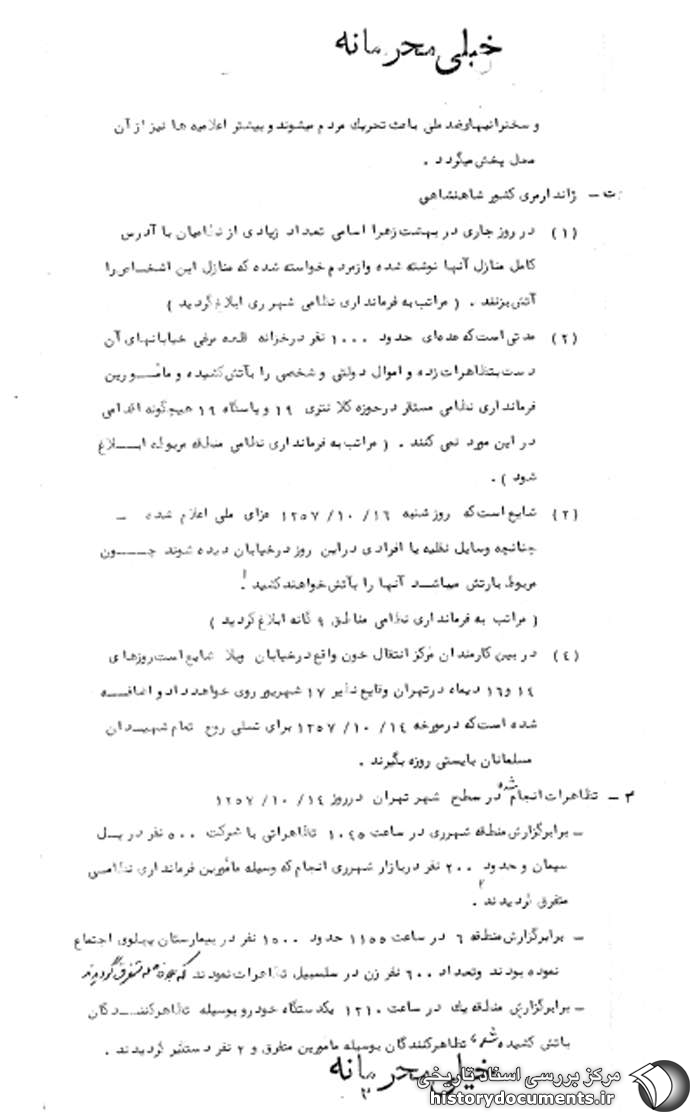 خیلی محرمانه
و سخنرانیهای ضد ملی باعث تحریک مردم میشوند و بیشتر اعلامیه ها نیز از آن
محل پخش میگردد .
ت - ژاندارمری کشور شاهنشاهی
(۱) در روز جاری در بهشت زهرا اسامی تعداد زیادی از نظامیان با آدرس
کامل منازل آنها نوشته شده و از مردم خواسته شده که منازل این اشخاص را
آتش بزنند . ( مراتب به فرمانداری نظامی شهرری ابلاغ گردید )
(۲) مدتی است که عده‌ای حدود ۱۰۰۰ نفر در خزانه قلعه مرغی خیابانهای آن
دست بتظاهرات زده و اموال دولتی و شخصی را بآتش کشیده و مأمورین
فرمانداری نظامی مستقر در حوزه کلانتری ۱۹ و پاسگاه ۱۹ هیچگونه اقدامی
در این مورد نمی کنند . ( مراتب به فرمانداری نظامی منطقه مربوطه ابلاغ
شود ) .
(۳) شایع است که روز شنبه ۱۶/ ۱۰/ ۱۳۵۷ عزای ملی اعلام شده -
چنانچه وسایل نقلیه یا افرادی در این روز در خیابان دیده شوند چون
مربوط بارتش میباشد آنها را بآتش خواهند کشید !
( مراتب به فرمانداری نظامی مناطق ۹ گانه ابلاغ گردید )
(٤) در بین کارمندان مرکز انتقال خون واقع در خیابان ویلا شایع است روزهای
۱۴ و ۱۶ دیماه در تهران وقایع نظیر ۱۷ شهریور روی خواهد داد و اضافه
شده است که در مورخه ۱۴/ ۱۰/ ۱۳۵۷ برای تسلی روح تمام شهیدان
مسلمانان بایستی روزه بگیرند .
۳ - تظاهرات انجام شده در سطح شهر تهران در روز ۱۴/ ۱۰/ ۱۳۵۷
- برابر گزارش منطقه شهرری در ساعت ۱۰۴۵ تظاهراتی با شرکت ۵۰۰ نفر در پل
سیمان و حدود ۲۰۰ نفر در بازار شهرری انجام که وسیله مأمورین فرمانداری نظامی
متفرق گردیدند .
- برابر گزارش منطقه ۶ در ساعت ۱۱۵۵ حدود ۱۵۰۰ نفر در بیمارستان پهلوی اجتماع
نموده بودند و تعداد ۶۰۰ نفر زن در سلسبیل تظاهرات نمودند که متفرق گردیدند
- برابر گزارش منطقه یک در ساعت ۱۲۱۰ یکدستگاه خودرو بوسیله تظاهرکنندگان
بآتش کشیده شد تظاهرکنندگان بوسیله مأمورین متفرق و ۲ نفر دستگیر گردیدند .
خیلی محرمانه
مرکز بررسی اسناد تاریخی
historydocuments.ir